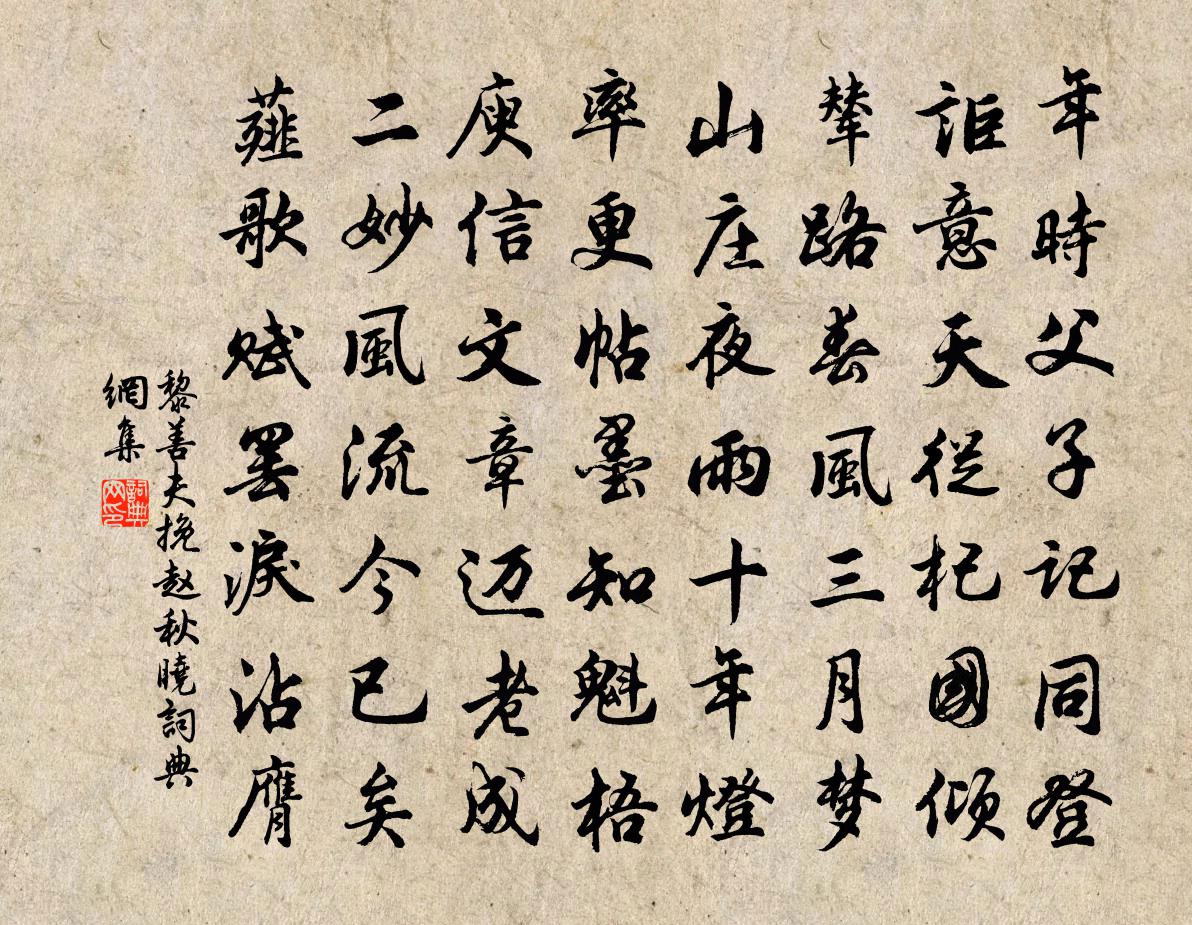 年時父子記同登
詎意天從杞國傾
輦路春風三月梦
山庄夜雨十年燈
率更帖墨知魁梧
庾信文章迈老成
二妙風流今已矣
薤歌赋罢淚沾膺
黎善夫挽赵秋曉詞典
網集
詞典
网印